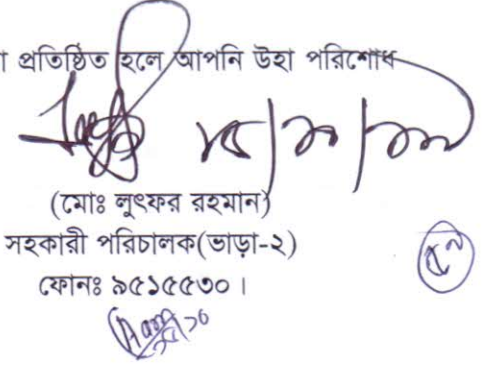 া প্রতিষ্ঠিত হলে আপনি উহা পরিশোধ
(মোঃ লুৎফর রহমান)
সহকারী পরিচালক(ভাড়া-২)
ফোনঃ ৯৫১৫৫৩০।